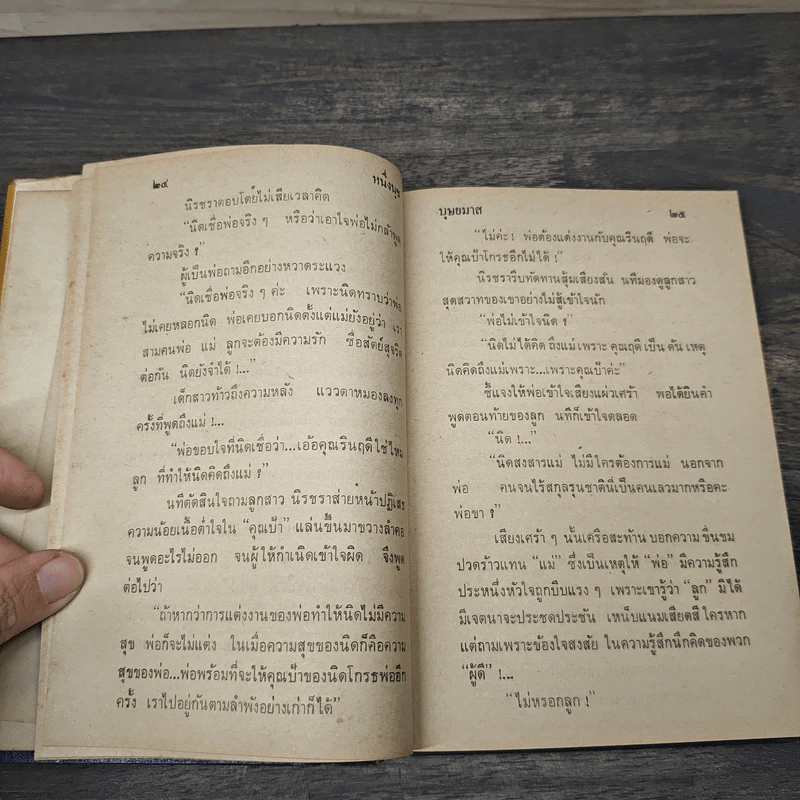 ๒๔ หนึ่งนุช
นิรชราตอบโดยไม่เสียเวลาคิด
“นิตเชื่อพ่อจริง ๆ หรือว่าเอาใจพ่อไม่กล้าพูด
ความจริง ?”
ผู้เป็นพ่อถามอีกอย่างหวาดระแวง
“นิตเชื่อพ่อจริง ๆ ค่ะ เพราะนิตทราบว่าพ่อ
ไม่เคยหลอกนิต พ่อเคยบอกนิตตั้งแต่แม่ยังอยู่ว่า เรา
สามคนพ่อ แม่ ลูกจะต้องมีความรัก ซื่อสัตย์สุจริต
ต่อกัน นิตยังจำได้ !...”
เด็กสาวท้าวถึงความหลัง แววตาหมองลงทุก
ครั้งที่พูดถึงแม่ !...
“พ่อขอบใจที่นิตเชื่อว่า...เอ้อคุณรินฤดีใช่ไหม
ลูก ที่ทำให้นิดคิดถึงแม่ ?”
นทีตัดสินใจถามลูกสาว นิรชราส่ายหน้าปฏิเสธ
ความน้อยเนื้อต่ำใจใน “คุณป้า” แล่นขึ้นมาขวางลำคอ
จนพูดอะไรไม่ออก จนผู้ให้กำเนิดเข้าใจผิด จึงพูด
ต่อไปว่า
“ถ้าหากว่าการแต่งงานของพ่อทำให้นิดไม่มีความ
สุข พ่อก็จะไม่แต่ง ในเมื่อความสุขของนิตก็คือความ
สุขของพ่อ...พ่อพร้อมที่จะให้คุณป้าของนิตโกรธพ่ออีก
ครั้ง เราไปอยู่กันตามลำพังอย่างเก่าก็ได้”
บุษยมาส ๒๕
“ไม่ค่ะ ! พ่อต้องแต่งงานกับคุณรินฤดี พ่อจะ
ให้คุณป้าโกรธอีกไม่ได้ !”
นิรชรารีบทัดทานสุ้มเสียงสั่น นทีมองดูลูกสาว
สุดสวาทของเขาอย่างไม่สู้เข้าใจนัก
“พ่อไม่เข้าใจนิต ?”
“นิตไม่ได้คิด ถึงแม่เพราะ คุณฤดี เป็น ต้น เหตุ
นิดคิดถึงแม่เพราะ...เพราะคุณป้าค่ะ”
ชี้แจงให้พ่อเข้าใจเสียงแผ่วเศร้า พอได้ยินคำ
พูดตอนท้ายของลูก นทีก็เข้าใจตลอด
“นิต !...”
“นิตสงสารแม่ ไม่มีใครต้องการแม่ นอกจาก
พ่อ คนจนไร้สกุลรุนชาตินี่เป็นคนเลวมากหรือคะ
พ่อขา ?”
เสียงเศร้า ๆ นั้นเครือสะท้าน บอกความ ขื่นขม
ปวดร้าวแทน “แม่” ซึ่งเป็นเหตุให้ “พ่อ” มีความรู้สึก
ประหนึ่งหัวใจถูกบีบแรง ๆ เพราะเขารู้ว่า “ลูก” มิได้
มีเจตนาจะประชดประชัน เหน็บแนมเสียดสี ใครหาก
แต่ถามเพราะข้องใจสงสัย ในความรู้สึกนึกคิดของพวก
“ผู้ดี” !...
“ไม่หรอกลูก !”